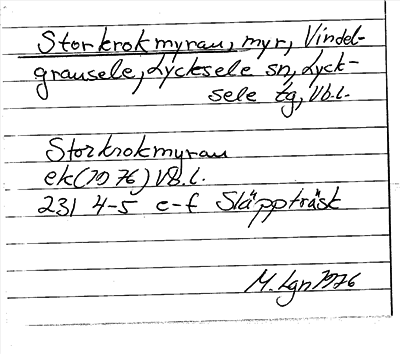 Storkrokmyrau, myr, Vindel-
grausele, Lycksele sn, Lyck-
sele tg, Vb.l.
Storkrokmyrau
ek (1976) Vb.l.
231 4-5 e-f Släppträsk
M. Lgn 1976